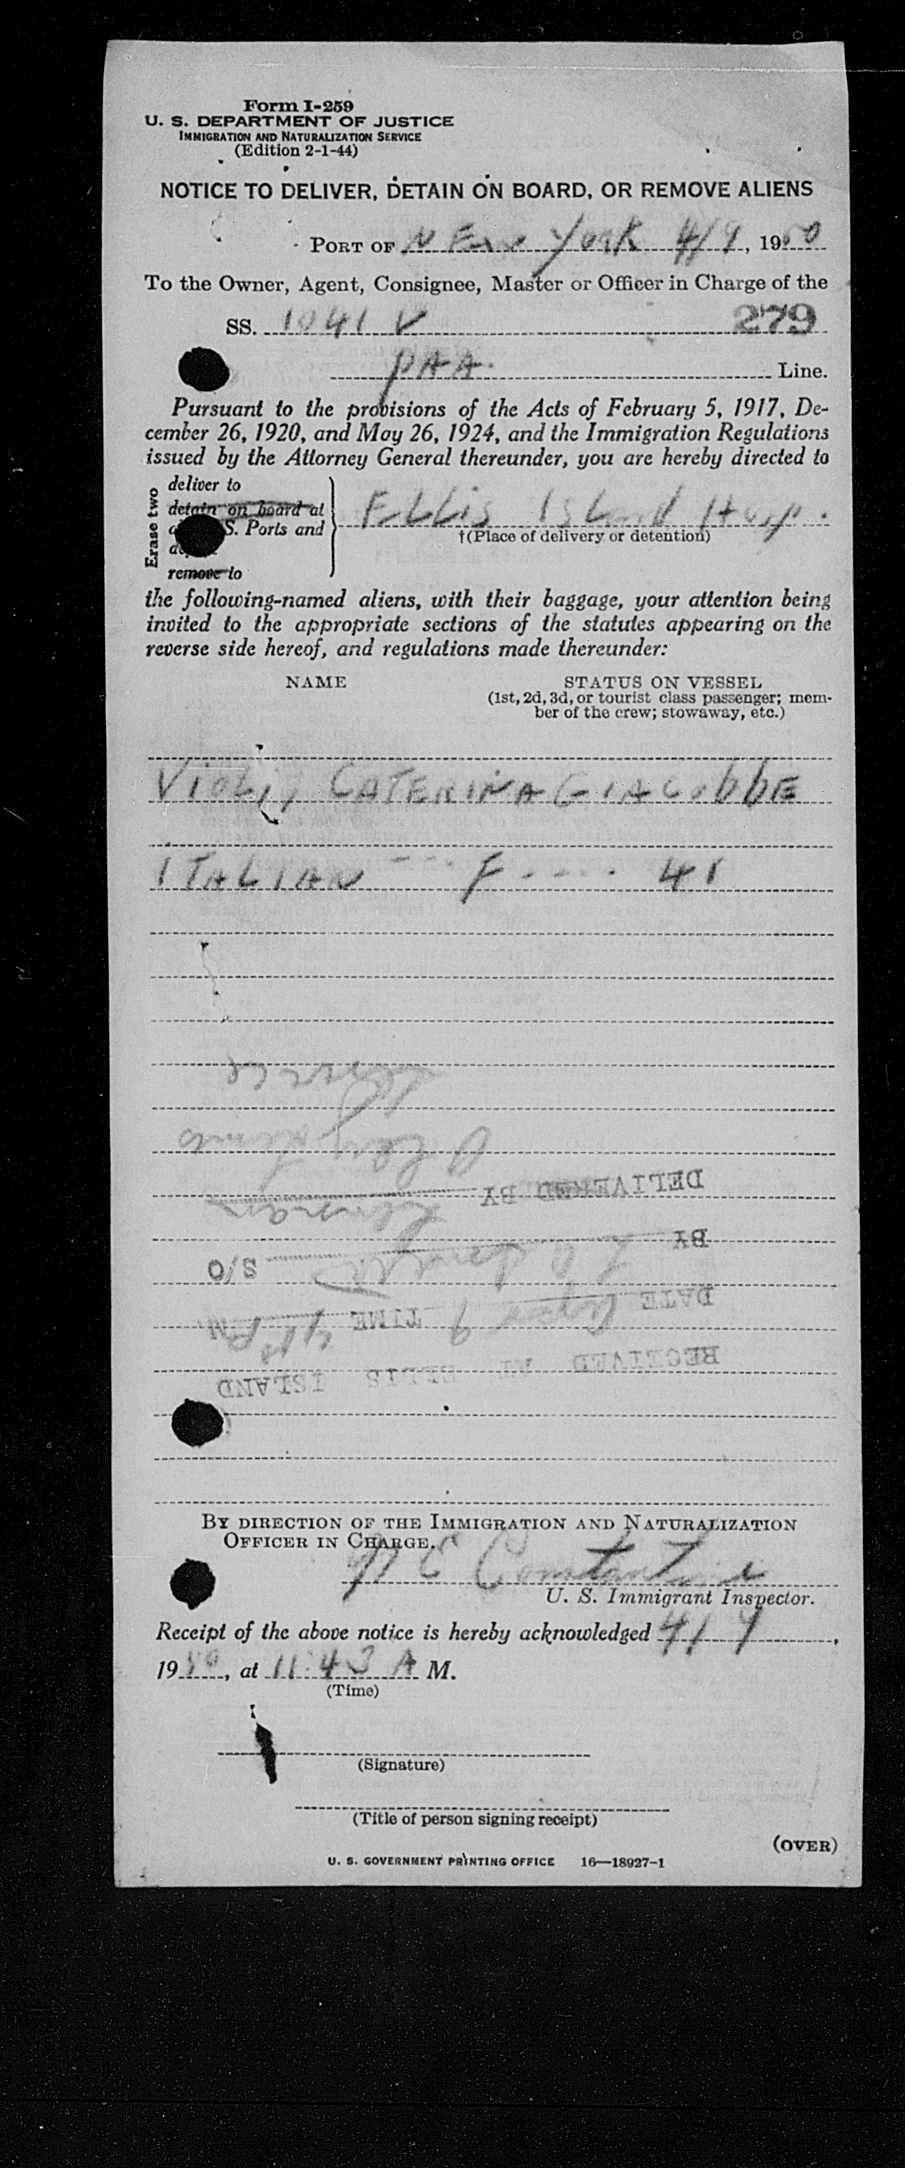 Form I-259
U. S. DEPARTMENT OF JUSTICE
IMMIGRATION AND NATURALIZATION SERVICE
(Edition 2-1-44)
NOTICE TO DELIVER, DETAIN ON BOARD, OR REMOVE ALIENS
PORT OF NEW York 4/9, 1950
To the Owner, Agent, Consignee, Master or Officer in Charge of the
SS. 1041 V 279
PAA. Line.
Pursuant to the provisions of the Acts of February 5, 1917, De-
cember 26, 1920, and May 26, 1924, and the Immigration Regulations
issued by the Attorney General thereunder, you are hereby directed to
Erase two
deliver to
detain on board at
S. Ports and
remove to
ELLIS ISLAND Hosp.
†(Place of delivery or detention)
the following-named aliens, with their baggage, your attention being
invited to the appropriate sections of the statutes appearing on the
reverse side hereof, and regulations made thereunder:
NAME STATUS ON VESSEL
(1st, 2d, 3d, or tourist class passenger; mem-
ber of the crew; stowaway, etc.)
VIOLI, CATERINA GIACObbE
ITALIAN --- F ---- 41
DELIVERED BY
BY S/O
DATE 9 TIME PM.
RECEIVED AT ELLIS ISLAND
BY DIRECTION OF THE IMMIGRATION AND NATURALIZATION
OFFICER IN CHARGE.
Constantine
U. S. Immigrant Inspector.
Receipt of the above notice is hereby acknowledged 4/9,
1950, at 11:43 A M.
(Time)
(Signature)
(Title of person signing receipt)
(OVER)
U. S. GOVERNMENT PRINTING OFFICE 16—18927-1